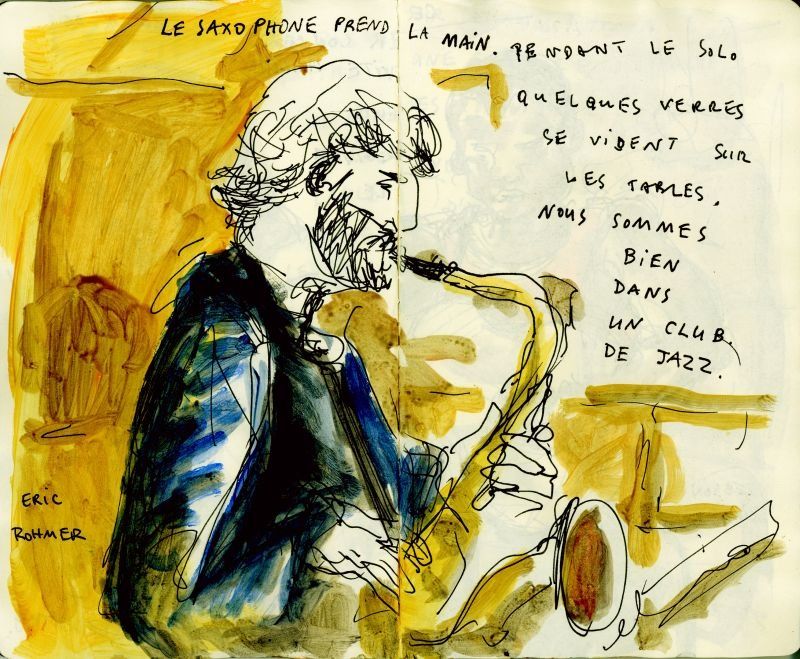 LE SAXOPHONE PREND LA MAIN. PENDANT LE SOLO
QUELQUES VERRES
SE VIDENT SUR
LES TABLES.
NOUS SOMMES
BIEN
DANS
UN CLUB
DE JAZZ.
ERIC
ROHMER